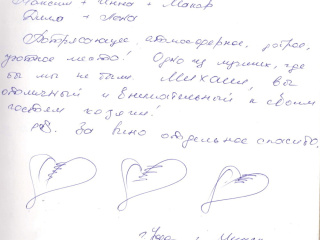 Максим + Инна + Макар
+
Потрясающе, атмосферное, доброе,
уютное место! Одно из лучших, где
бы мы не были. Михаил, вы
отличный и внимательный к своим
гостям хозяин!
P.S. За вино отдельное спасибо.